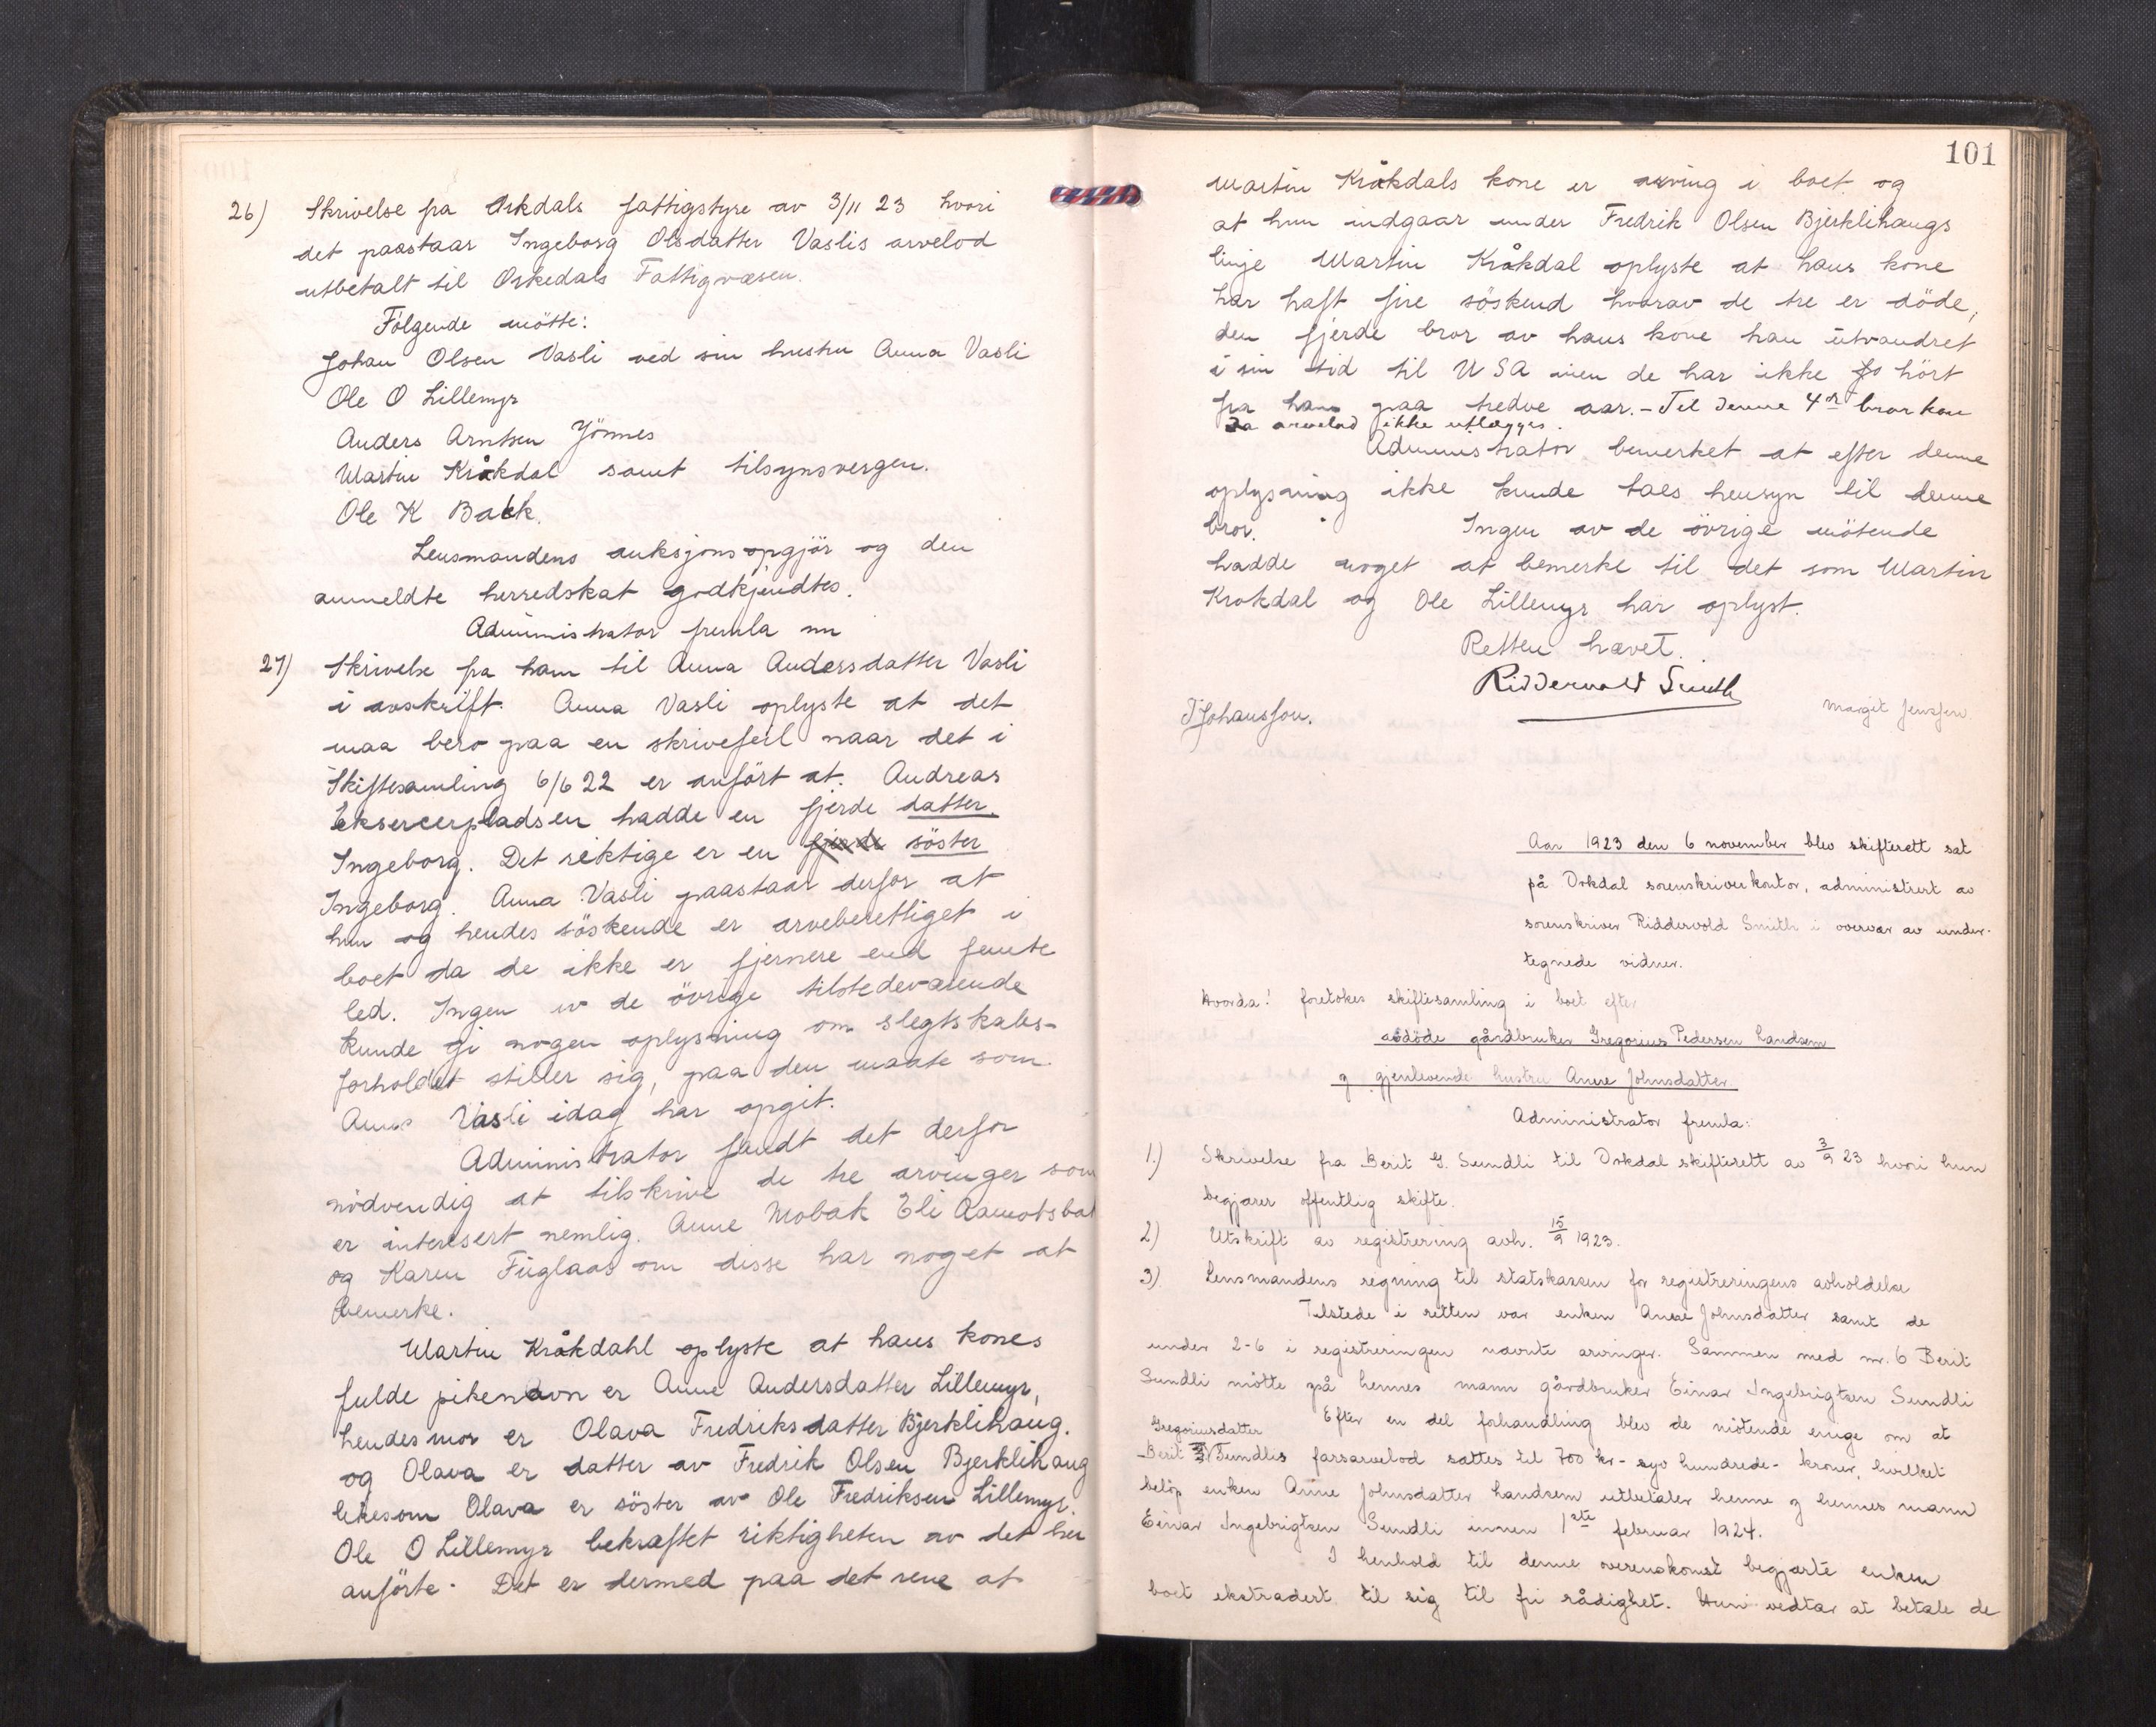 26) Skrivelse fra Orkdals fattigstyre av 3/11 23 hvori
det paastaar Ingeborg Olsdatter Vaslis arvelod
utbetalt til Orkedals Fattigvæsen.
Følgende mötte:
Johan Olsen Vasli ved sin hustru Anna Vasli
Ole O Lillemyr
Anders Arntsen Jönnes
Martin Kråkdal samt tilsynsvergen.
Ole K Bakk.
Lensmandens auksjonsopgjör og den
anmeldte herredskat godkjendtes.
Administrator fremla nu
27) Skrivelse fra ham til Anna Andersdatter Vasli
i avskrift. Anna Vasli oplyste at det
maa bero paa en skrivefeil naar det i
Skiftesamling 6/6 22 er anfört at Andreas
Eksercerpladsen hadde en fjerde datter
Ingeborg. Det riktige er en fjerde söster
Ingeborg. Anna Vasli paastaar derfor at
hun og hendes söskende er arveberettiget i
boet da de ikke er fjernere end femte
led. Ingen av de övrige tilstedeværende
kunde gi nogen oplysning om slegtskabs-
forholdet stiller sig, paa den maate som
Anna Vasli idag har opgit.
Administrator fandt det derfor
nödvendig at tilskrive de tre arvinger som
er interesert nemlig. Anne Mobak Eli Aamotsbak
og Karen Fuglaas om disse har noget at
bemerke.
Martin Kråkdahl oplyste at hans kones
fulde pikenavn er Anne Andersdatter Lillemyr,
hendes mor er Olava Fredriksdatter Bjerklihaug.
og Olava er datter av Fredrik Olsen Bjerklihaug
likesom Olava er söster av Ole Fredriksen Lillemyr.
Ole O Lillemyr bekræftet riktigheten av det her
anförte. Det er dermed paa det rene at
101
Martin Kråkdals kone er arving i boet og
at hun indgaar under Fredrik Olsen Bjerklihaugs
linje Martin Kråkdal oplyste at hans kone
har haft fire söskend hvorav de tre er döde,
den fjerde bror av hans kone han utvandret
i sin tid til USA men de har ikke hört
fra ham paa tredve aar. - Til denne 4de bror kan
da arvelod ikke utlægges.
Administrator bemerket at efter denne
oplysning ikke kunde taes hensyn til denne
bror. Ingen av de övrige mötende
hadde noget at bemerke til det som Martin
Krokdal og Ole Lillemyr har oplyst.
Retten hævet.
Riddervold Smith
T Johanssen. Margit Jenssen
Aar 1923 den 6 november blev skifterett sat
på Orkdal sorenskriverkontor, administrert av
sorenskriver Riddervold Smith i overvær av under-
tegnede vidner.
Hvorda! foretokes skiftesamling i boet efter
avdöde gårdbruker Gregorius Pedersen Landrem
og gjenlevende hustru Anne Johnsdatter
Administrator fremla:
1.) Skrivelse fra Berit G. Sundli til Orkdal skifterett av 3/9 23 hvori hun
begjærer offentlig skifte.
2) Utskrift av registrering avh. 15/9 1923.
3) Lensmandens regning til statskassen for registreringens avholdelse
Tilstede i retten var enken Anne Johnsdatter samt de
under 2-6 i registreringen nævnte arvinger. Sammen med nr. 6 Berit
Sundli mötte også hennes mann gårdbruker Einar Ingebrigtsen Sundli
Efter en del forhandling blev de mötende enige om at
Gregoriusdatter
Berit Sundlis farsarvelod sattes til 700 kr - syv hundrede - kroner, hvilket
belöp enken Anne Johnsdatter Landrem utbetaler henne og hennes mann
Einar Ingebrigtsen Sundli innen 1ste februar 1924.
I henhold til denne overenskomst begjærte enken
boet ekstradert til sig til fri rådighet. Hun vedtar at betale de